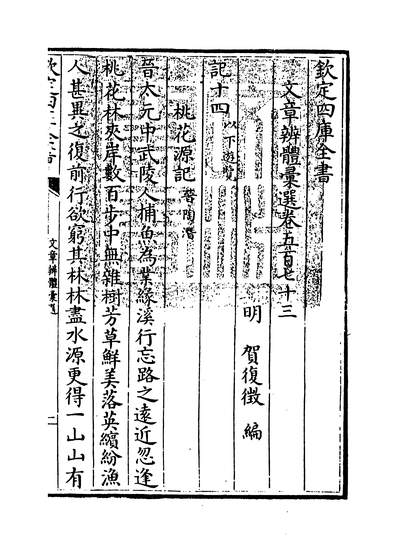 欽定四庫全書
文章辨體彙選卷五百七十三
明 賀復徵 編
記十四 以下遊覽
桃花源記 晉陶潛
晉太元中武陵人捕魚為業緣溪行忘路之遠近忽逢
桃花林夾岸數百步中無雜樹芳草鮮美落英繽紛漁
人甚異之復前行欲窮其林林盡水源更得一山山有
欽定四庫全書
文章辨體彙選